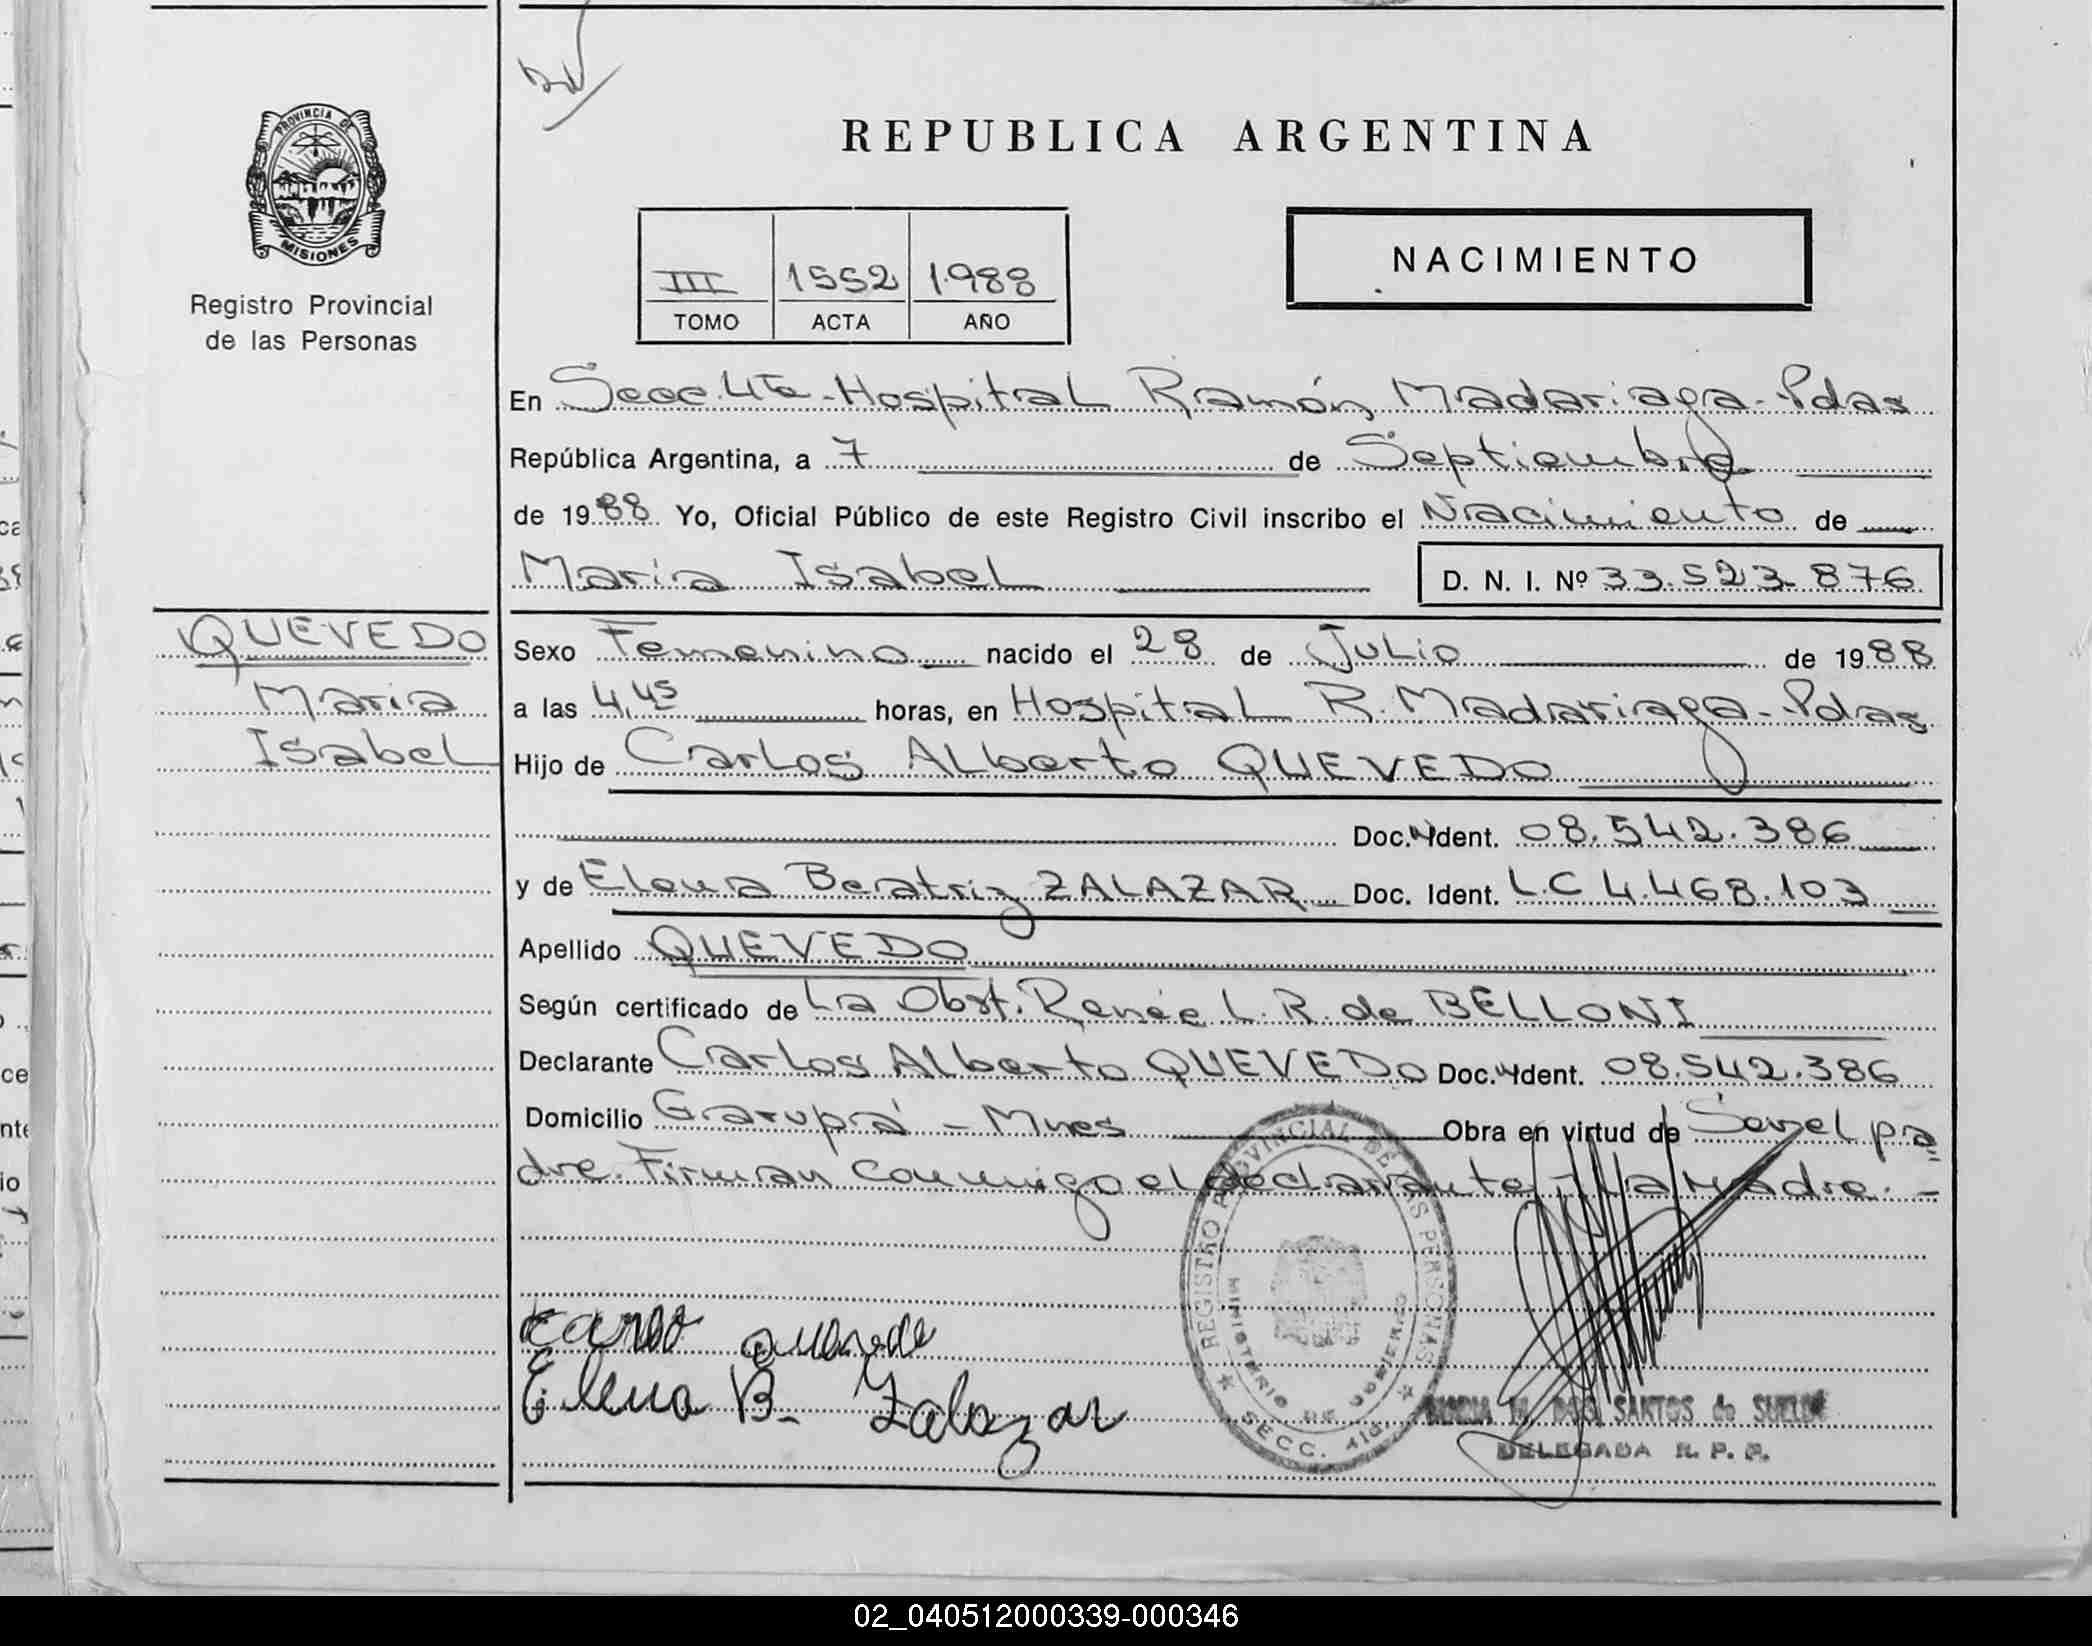 REPUBLICA ARGENTINA
PROVINCIA DE
MISIONES
Registro Provincial
de las Personas
NACIMIENTO
III 1552 1988
TOMO ACTA AÑO
En Secc. 4ta - Hospital Ramón Madariaga - Pdas
República Argentina, a 7 de Septiembre
de 1988 Yo, Oficial Público de este Registro Civil inscribo el Nacimiento de
María Isabel D. N. I. Nº 33.523.876
QUEVEDO
María
Isabel
Sexo Femenino nacido el 28 de Julio de 1988
a las 4,45 horas, en Hospital R. Madariaga - Pdas
Hijo de Carlos Alberto QUEVEDO
Doc. Ident. 08.542.386
y de Elena Beatriz ZALAZAR Doc. Ident. L.C 4.468.103
Apellido QUEVEDO
Según certificado de La Obst. Renée L. R. de BELLONI
Declarante Carlos Alberto QUEVEDO Doc. Ident. 08.542.386
Domicilio Garupá - Mnes Obra en virtud de Ser el pa
dre. Firman conmigo el declarante y la Madre. -
REGISTRO PROVINCIAL DE LAS PERSONAS
MINISTERIO DE GOBIERNO
SECC. 4ta
Carlos Quevedo
Elena B. Zalazar
DOS SANTOS de
DELEGADA R. P. P.
02_040512000339-000346